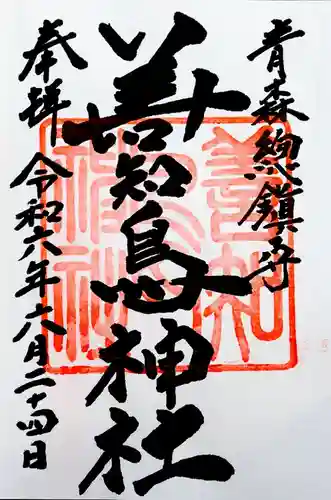 青森総鎮守
善知鳥神社
奉拝
令和六年六月二十四日
善知鳥神社